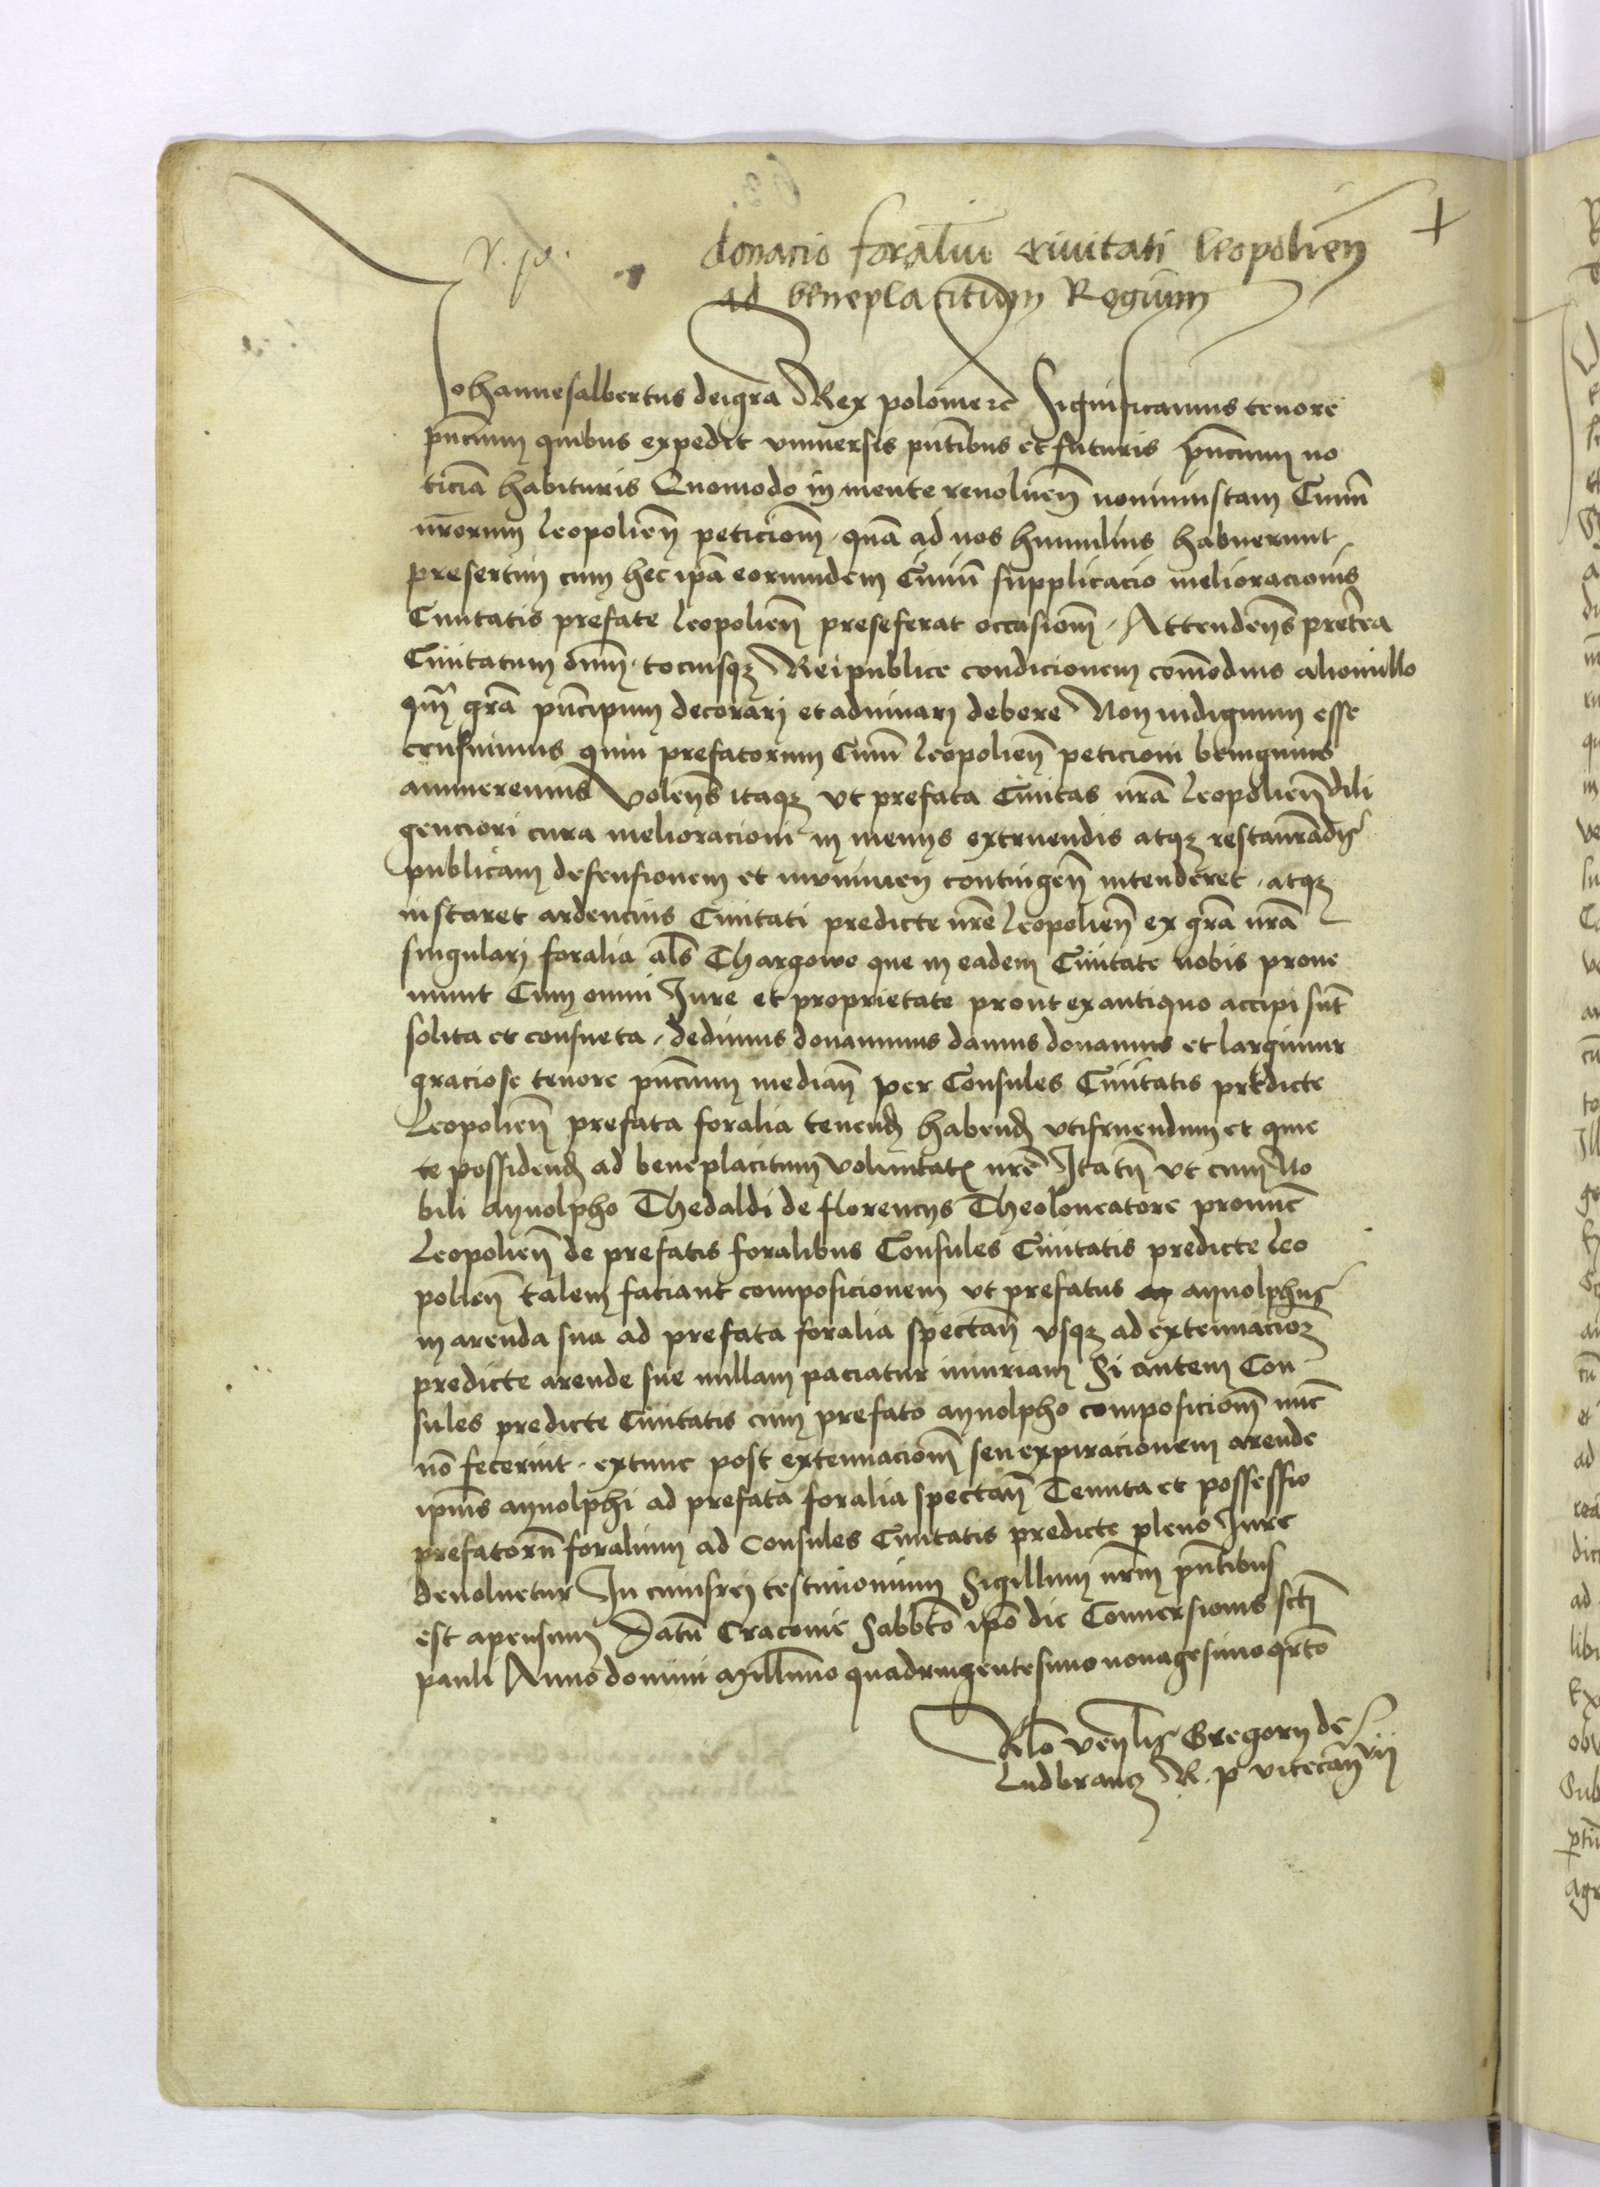 donacio foraliu civitati leopolien̄
ad beneplacitum Regium
Johannesalbertus deigrā Rex polonie ꝛc̄ Significamus tenore
pn̄cium quibus expedit vniversis pn̄tibus et futuris pn̄cium no
ticiā habituris Quomodo in mente revolven̄ non iniustam Civiū
nr̄orum leopolien̄ peticiom̄ quā ad nos humilius habuerunt
presertim cum hec ip̄a eorumdem Civiū supplicacio melioracionis
Civitatis prefate leopolien̄ preseferat occasiom̄ . Attenden̄s preterea
Civitatum om̄m tociusqꝫ Reipublice condicionem com̄odius alio nullo
qm̄ grā pn̄cipum decorarj et adiuvarj debere Non indignum esse
censuimus quin prefatorum Civiū leopolien̄ peticioni benignius
annueremus Volen̄s itaqꝫ vt prefata Civitas nr̄a leopolien̄ dili
genciori cura melioracioni in menijs extruendis atqꝫ restaurādis
publicam defensionem et munimen contingen̄ intenderet . atqꝫ
instaret ardencius Civitati predicte nr̄e leopolien̄ ex grā nr̄a
singularj foralia als̄ Thargowe que in eadem Civitate nobis prove
niunt Cum omni Jure et proprietate prout ex antiquo accipi sūt
solita et consueta . dedimus donavimus damus donamus et largimur
graciose tenore pn̄cium median̄ per Consules Civitatis predicte
Leopolien̄ prefata foralia tenend̄ habend̄ vtifruendum et quie
te possidend̄ ad beneplacitum voluntatꝭ nr̄e Ita tn̄ vt cum No
bili aynolpho Thedaldi de florencijs Theoloneatore pronūc
Leopolien̄ de prefatis foralibus Consules Civitatis predicte leo
polien̄ talem faciant composicionem vt prefatus aynolphus
in arenda sua ad prefata foralia spectan̄ vsqꝫ ad extenuaciōꝫ
predicte arende sue nullam paciatur iniuriam Si autem Con
sules predicte Civitatis cum prefato aynolpho composiciom̄ nūc
nō fecerint . extunc post extenuaciom̄ seu expiracionem arende
ipius aynolphi ad prefata foralia spectan̄ Tenuta et possessio
prefatorū foralium ad Consules Civitatis predicte pleno Jure
devoluetur In cuius rej testimonium Sigillum nr̄m pn̄tibus
est apensum Datū Cracovie Sabbto ip̄o die Conversionis sctj
pauli Anno domini Millimo quadringentesimo nonagesimoqrto
Relo venlis Gregorij de
Ludbrancz R. p vicecan̄rij